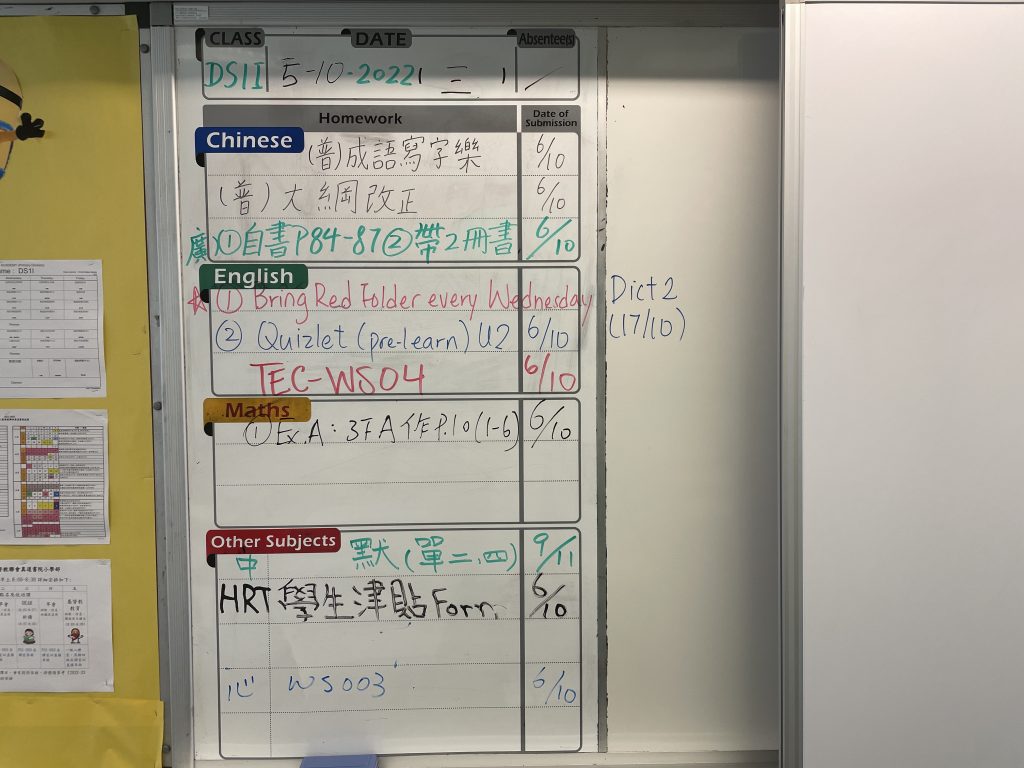 CLASS DATE Absentee(s)
DS1I 5-10-2022 三
Homework Date of Submission
Chinese
(普)成語寫字樂 6/10
(普)大綱改正 6/10
廣)①自書P84-87②帶2冊書 6/10
English
☆ ① Bring Red Folder every Wednesday Dict 2
② Quizlet (pre-learn) U2 6/10 (17/10)
TEC-WS04 6/10
Maths
① Ex.A: 3FA作P.10(1-6) 6/10
Other Subjects
中 默(單二、四) 9/11
HRT 學生津貼Form 6/10
心 WS003 6/10
me : DS1I